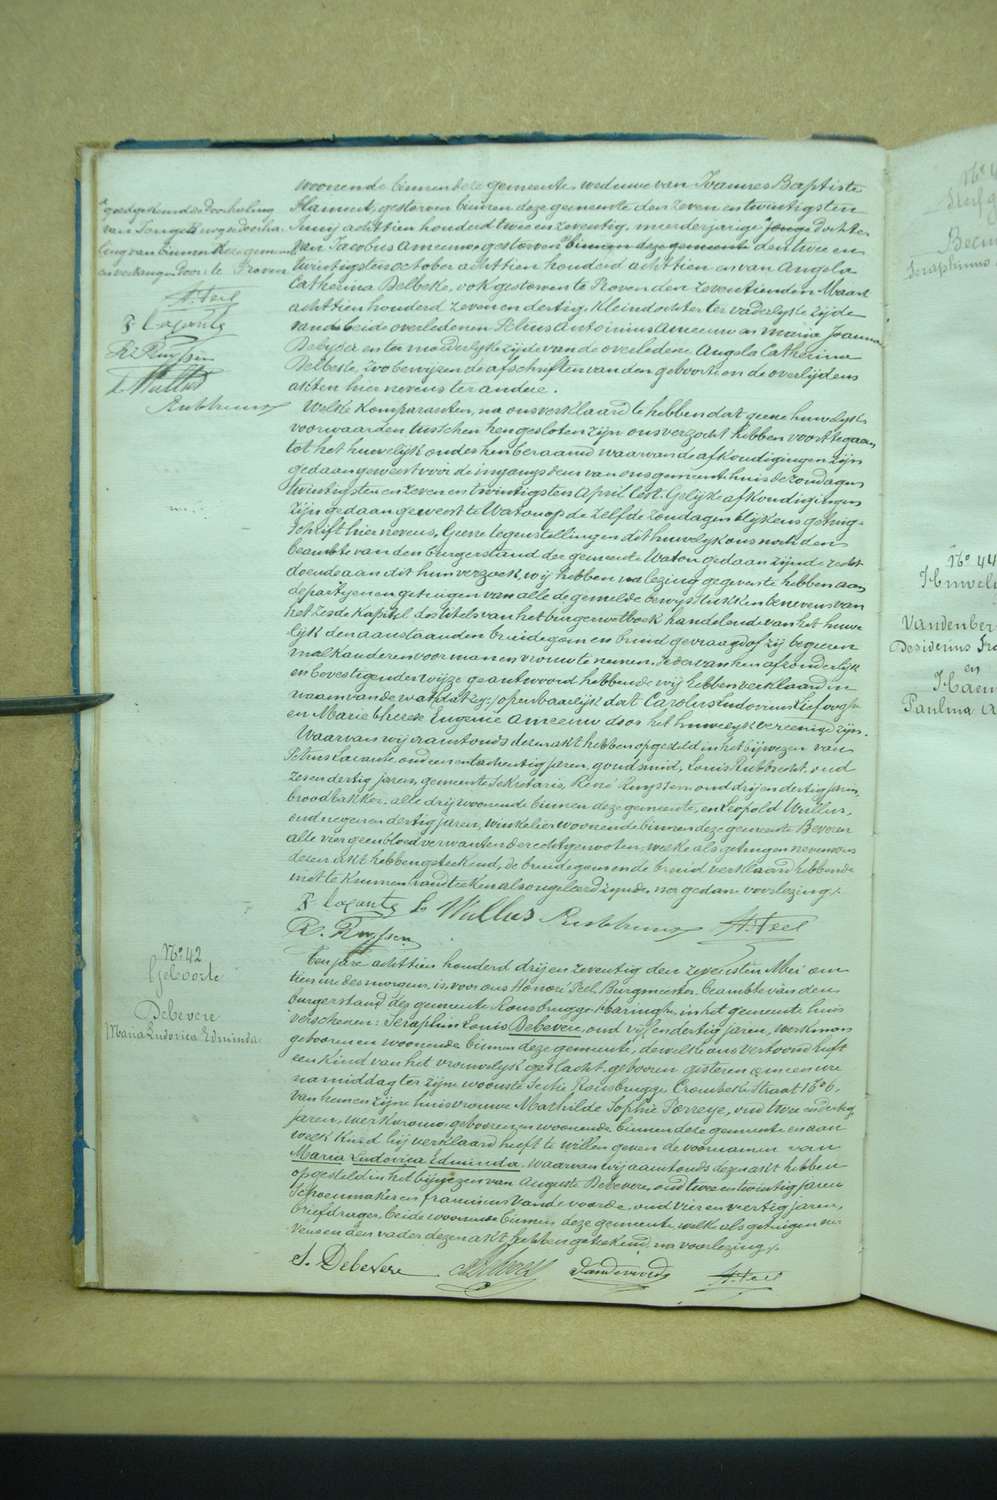 goedgekeurd de doorhaling
van
ling van binnen deze gemeente
en vervangen door te Proven
H. Peel
P. Cayantz
R. Ruyssen
L. Wullus
Rubbrecht
woonende binnen deze gemeente, weduwe van Joannes Baptiste
Hannet, gestorven binnen deze gemeente den zeven en twintigsten
Junij achttien honderd twee en zeventig, meerderjarige jonge dochter
van Jacobus Ameeuw, gestorven binnen deze gemeente den twee en
twintigsten october achttien honderd achttien en van Angela
Catherina Delbeke, ook gestorven te Proven den zeventienden Maart
achttien honderd zeven en dertig, kleindochter ter vaderlijke zijde
van de beide overledenen Petrus Antoninus Ameeuw en Maria Joanna
Debyser en ter moederlijke zijde van de overledene Angela Catherina
Delbeke, zoo bewijzen de afschriften van den geboorte en de overlijdens
akten hier nevens ter andere.
Welke Komparanten, na ons verklaard te hebben dat geene huwelijks
voorwaarden tusschen hen gesloten zijn ons verzocht hebben voort te gaan
tot het huwelijk onder hen beraamd waarvan de afkondigingen zijn
gedaan geweest voor de ingangsdeur van ons gemeentehuis de zondagen
twintigsten en zeven en twintigsten April lest. Gelijke afkondigingen
zijn gedaan geweest te Watou op de zelfde zondagen blijkens getuig-
schrift hiernevens. Geene tegenstellingen dit huwelijk ons noch den
beambte van den burgerstand der gemeente Watou gedaan zijnde recht
doende aan dit hun verzoek, wij hebben na lezing gegeven te hebben aan
de partijen en getuigen van alle de gemelde bewijsstukken benevens van
het zesde kapittel des titels van het burgerwetboek handelende van het huwe-
lijk den aanstaanden bruidegom en bruid gevraagd of zij begeeren
malkanderen voor man en vrouw te nemen. Ieder van hen afzonderlijk
en bevestigender wijze geantwoord hebbende wij hebben verklaard in
naam van de wet dat zij openbaarlijk dat Carolus Ludovicus Liefooghe
en Marie Therese Eugenie Ameeuw door het huwelijk vereenigd zijn.
Waarvan wij aanstonds dezen akt hebben opgesteld in het bijwezen van
Petrus Cayante, oud een en tachentig jaren, goudsmid, Louis Rubbrecht, oud
zes en dertig jaren, gemeente Sekretaris, René Ruyssen, oud drij en dertig jaren,
broodbakker, alle drij woonende binnen deze gemeente, en Leopold Wullus,
oud negen en dertig jaren, winkelier woonende binnen deze gemeente Beveren
alle vier geen bloedverwanten der echtgenooten, welke als getuigen nevens ons
dezen akt hebben geteekend, de bruidegom en de bruid verklaard hebbende
niet te kunnen handteeken als ongeleerd zijnde, na gedane voorlezing.
P. Cayantz L. Wullus Rubbrecht H. Peel
R. Ruyssen
No 42
Geboorte
Debevere
Maria Ludovica Edminda
Ten jare achttien honderd drij en zeventig den zevensten Mei om
tien ure des morgens, is voor ons Honoré Peel, Burgmeester, beambte van den
burgerstand des gemeente Rousbrugge-Haringhe, in het gemeente huis
verschenen: Seraphin Louis Debevere, oud vijf en dertig jaren, werkman
geboren en woonende binnen deze gemeente, de welke ons vertoond heeft
een kind van het vrouwelijk geslacht, geboren gisteren om een ure
na middag ter zijne woonste Sectie Rousbrugge Crombeke Straat No 6.
van hem en zijne huisvrouwe Mathilde Sophie Torreye, oud twee en dertig
jaren, werkvrouw, geboren en woonende binnen deze gemeente en aan
welk kind hij verklaard heeft te willen geven de voornamen van
Maria Ludovica Edminda. Waarvan wij aanstonds dezen akt hebben
opgesteld in het bijwezen van Auguste Debevere, oud twee en twintig jaren
schoenmaker en Franciscus Vandevoorde, oud vier en vertig jaren,
briefdrager, beide woonende binnen deze gemeente, welk als getuigen ne-
vens en den vader dezen akt hebben geteekend, na voorlezing.
S. Debevere Vandevoorde H. Peel
Becu
Seraphinus
No 44
Huweli
Vandenber
Desiderius Fra
en
Haem
Paulina A